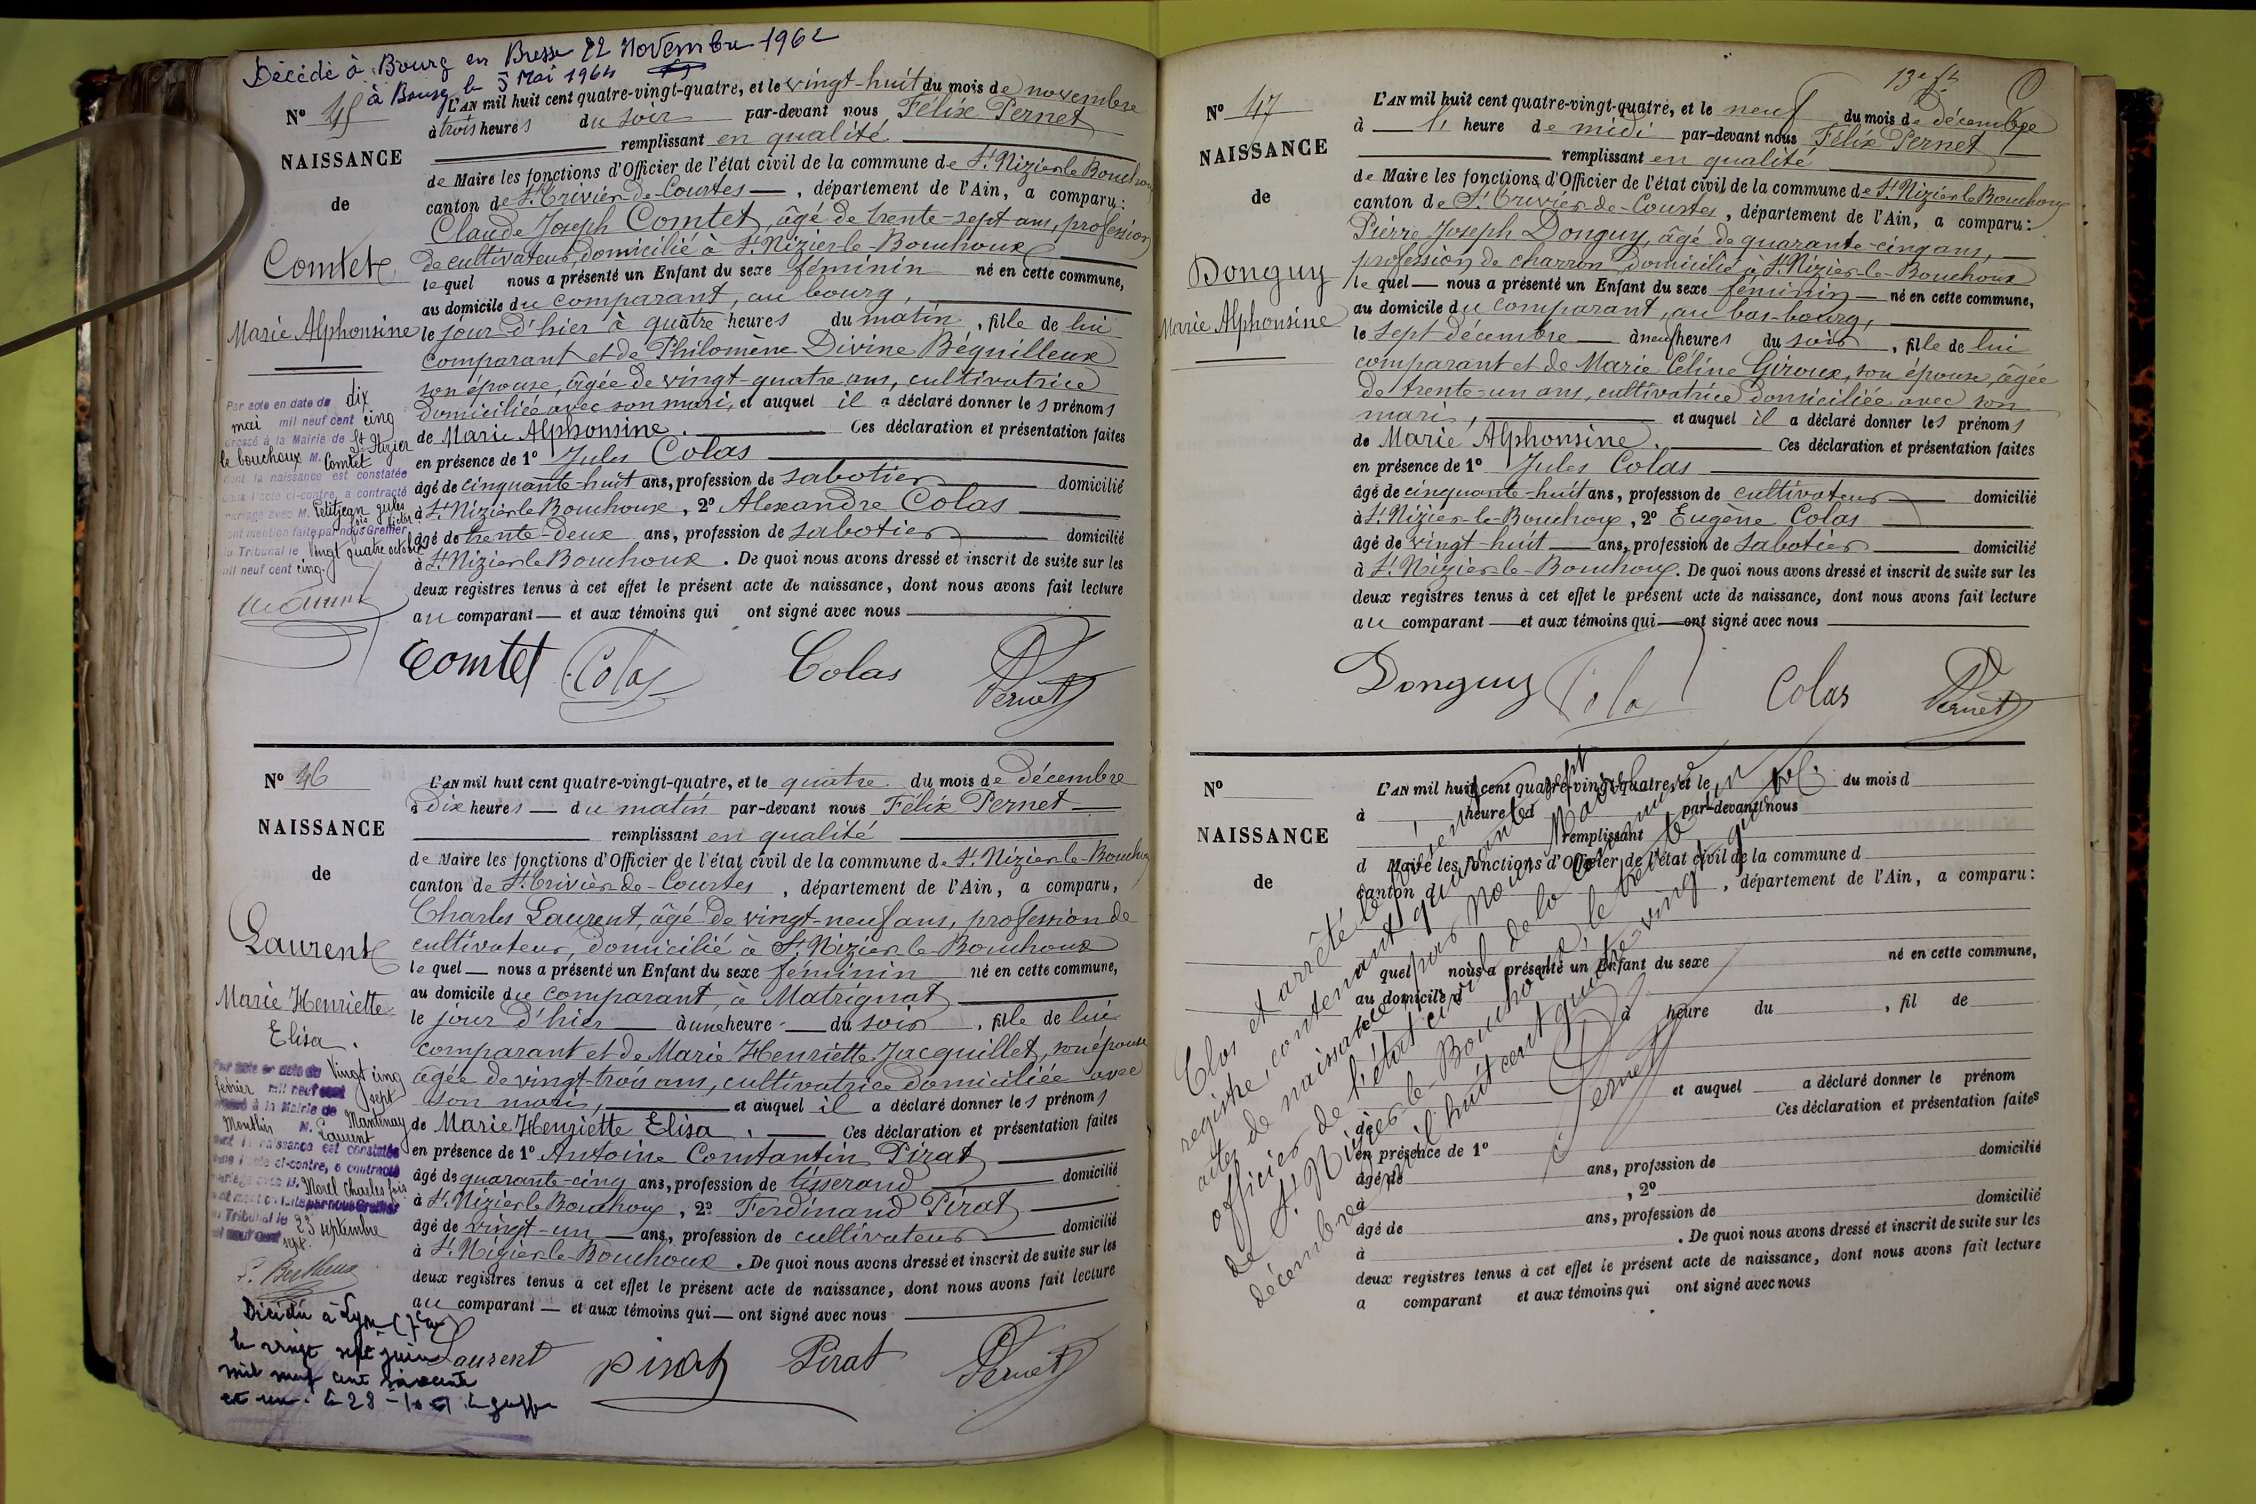 Décédé à Bourg en Bresse 22 Novembre 1962
à Bourg le 5 Mai 1964
N° 45
NAISSANCE
de
Comtet
Marie Alphonsine
Par acte en date du dix
mai mil neuf cent cinq
dressé à la Mairie de St Nizier
le bouchoux M. Comtet
dont la naissance est constatée
dans l'acte ci-contre, a contracté
mariage avec M. Petitjean Jules
dont mention faite par nous Greffier
du Tribunal le vingt quatre octobre
mil neuf cent cinq.
L'AN mil huit cent quatre-vingt-quatre, et le vingt-huit du mois de novembre
à trois heures du soir par-devant nous Félix Pernet
remplissant en qualité
de Maire les fonctions d'Officier de l'état civil de la commune de St Nizier le Bouchoux
canton de St Trivier-de-Courtes, département de l'Ain, a comparu:
Claude Joseph Comtet, âgé de trente-sept ans, profession
de cultivateur, domicilié à St Nizier-le-Bouchoux
lequel nous a présenté un Enfant du sexe féminin né en cette commune,
au domicile du comparant, au bourg,
le jour d'hier à quatre heures du matin, fille de lui
comparant et de Philomène Divine Béguilleux
son épouse, âgée de vingt-quatre ans, cultivatrice
domiciliée avec son mari, et auquel il a déclaré donner les prénoms
de Marie Alphonsine. Ces déclaration et présentation faites
en présence de 1° Jules Colas
âgé de cinquante-huit ans, profession de sabotier domicilié
à St Nizier le Bouchoux, 2° Alexandre Colas
âgé de trente-deux ans, profession de sabotier domicilié
à St Nizier le Bouchoux. De quoi nous avons dressé et inscrit de suite sur les
deux registres tenus à cet effet le présent acte de naissance, dont nous avons fait lecture
au comparant et aux témoins qui ont signé avec nous
Comtet Colas Colas Pernet
N° 46
NAISSANCE
de
Laurent
Marie Henriette
Elisa.
Par acte en date du vingt cinq
février mil neuf cent sept
dressé à la Mairie de Mantenay
Montlin M. Laurent
dont la naissance est constatée
dans l'acte ci-contre, a contracté
mariage avec M. Morel Charles
dont mention faite par nous Greffier
du Tribunal le 23 septembre
mil neuf cent sept.
Décédée à Lyon
le vingt sept juin
mil neuf cent soixante
et un.
L'AN mil huit cent quatre-vingt-quatre, et le quatre du mois de décembre
à dix heures du matin par-devant nous Félix Pernet
remplissant en qualité
de Maire les fonctions d'Officier de l'état civil de la commune de St Nizier-le-Bouchoux
canton de St Trivier-de-Courtes, département de l'Ain, a comparu,
Charles Laurent, âgé de vingt-neuf ans, profession de
cultivateur, domicilié à St Nizier-le-Bouchoux
lequel nous a présenté un Enfant du sexe féminin né en cette commune,
au domicile du comparant, à Matrignat
le jour d'hier à une heure du soir, fille de lui
comparant et de Marie Henriette Jacquillet, son épouse
âgée de vingt-trois ans, cultivatrice domiciliée avec
son mari, et auquel il a déclaré donner les prénoms
de Marie Henriette Elisa. Ces déclaration et présentation faites
en présence de 1° Antoine Constantin Pirat
âgé de quarante-cinq ans, profession de tisserand domicilié
à St Nizier le Bouchoux, 2° Ferdinand Pirat
âgé de vingt-un ans, profession de cultivateur domicilié
à St Nizier le Bouchoux. De quoi nous avons dressé et inscrit de suite sur les
deux registres tenus à cet effet le présent acte de naissance, dont nous avons fait lecture
au comparant et aux témoins qui ont signé avec nous
Laurent Pirat Pirat Pernet
N° 47
NAISSANCE
de
Donguy
Marie Alphonsine
L'AN mil huit cent quatre-vingt-quatre, et le neuf du mois de décembre
à heure de midi par-devant nous Félix Pernet
remplissant en qualité
de Maire les fonctions d'Officier de l'état civil de la commune de St Nizier le Bouchoux
canton de St Trivier-de-Courtes, département de l'Ain, a comparu:
Pierre Joseph Donguy, âgé de quarante-cinq ans,
profession de charron domicilié à St Nizier-le-Bouchoux
lequel nous a présenté un Enfant du sexe féminin né en cette commune,
au domicile du comparant, au bas-bourg,
le sept décembre à neuf heures du soir, fille de lui
comparant et de Marie Céline Giroux, son épouse, âgée
de trente-un ans, cultivatrice domiciliée avec son
mari, et auquel il a déclaré donner les prénoms
de Marie Alphonsine. Ces déclaration et présentation faites
en présence de 1° Jules Colas
âgé de cinquante-huit ans, profession de cultivateur domicilié
à St Nizier-le-Bouchoux, 2° Eugène Colas
âgé de vingt-huit ans, profession de sabotier domicilié
à St Nizier-le-Bouchoux. De quoi nous avons dressé et inscrit de suite sur les
deux registres tenus à cet effet le présent acte de naissance, dont nous avons fait lecture
au comparant et aux témoins qui ont signé avec nous
Donguy Colas Colas Pernet
N°
NAISSANCE
de
L'AN mil huit cent quatre-vingt-quatre, et le du mois d
à heure d par-devant nous
remplissant
d Maire les fonctions d'Officier de l'état civil de la commune d
canton d , département de l'Ain, a comparu:
quel nous a présenté un Enfant du sexe né en cette commune,
au domicile d
à heure du , fil de
et auquel a déclaré donner le prénom
de Ces déclaration et présentation faites
en présence de 1°
âgé de ans, profession de domicilié
à , 2°
âgé de ans, profession de domicilié
à . De quoi nous avons dressé et inscrit de suite sur les
deux registres tenus à cet effet le présent acte de naissance, dont nous avons fait lecture
a comparant et aux témoins qui ont signé avec nous
Clos et arrêté le présent
registre, contenant quarante sept
actes de naissance par Nous Maire
officier de l'état civil de la commune
de St Nizier-le-Bouchoux, le trente un
décembre mil huit cent quatre-vingt-quatre.
Pernet